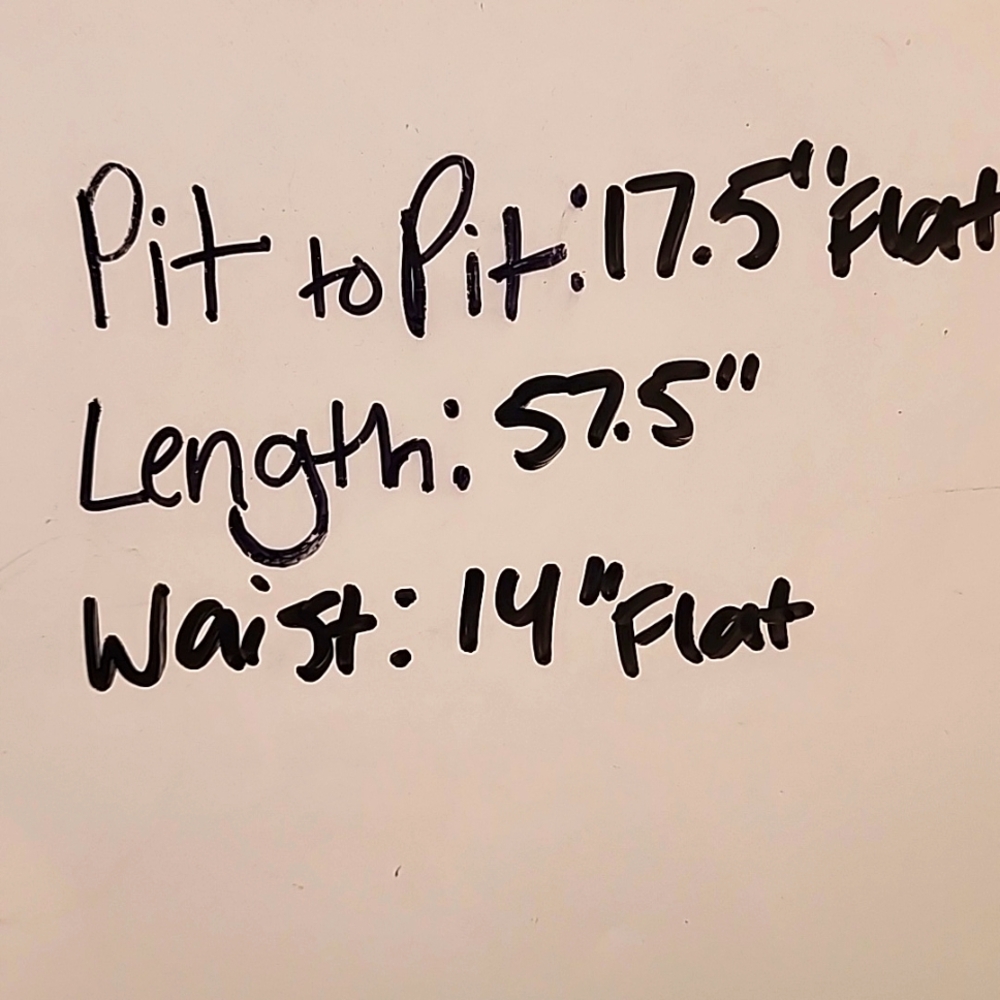 Pit to Pit: 17.5" Flat
Length: 57.5"
Waist: 14" Flat